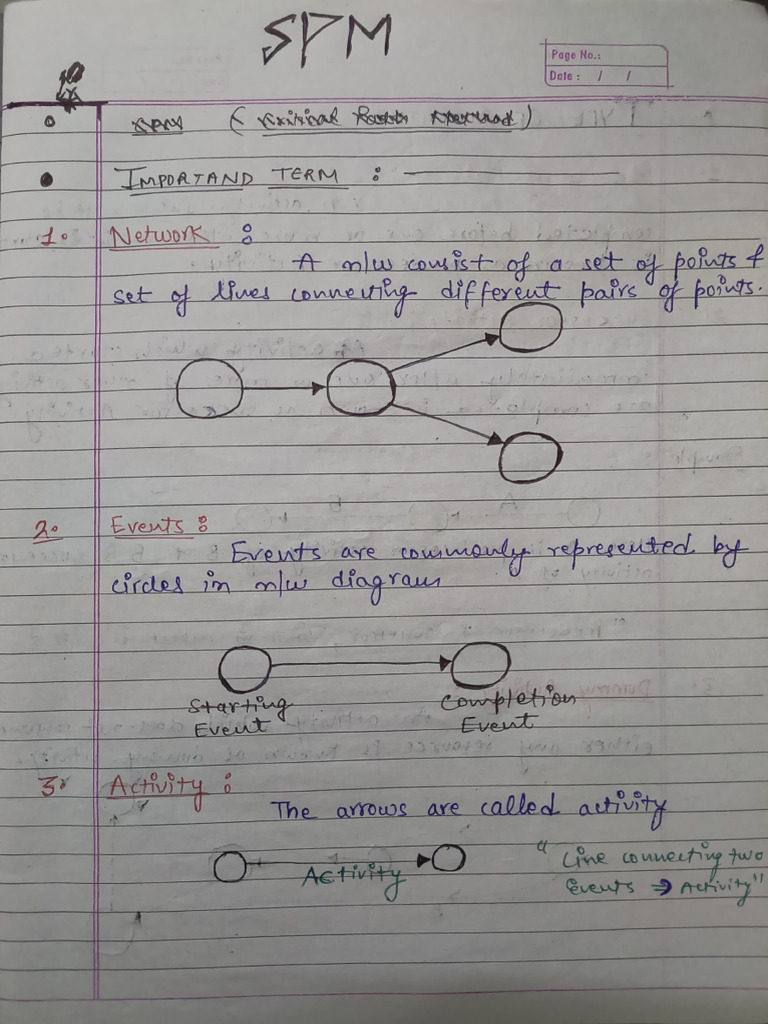 SPM
Page No.:
Date : / /
(Critical Path Method)
IMPORTAND TERM :
1. Network :
A n/w consist of a set of points &
set of lines connecting different pairs of points.
2. Events :
Events are commonly represented by
circles in n/w diagram
Starting Event
Completion Event
3. Activity :
The arrows are called activity
Activity
"Line connecting two
Events ⇒ Activity"